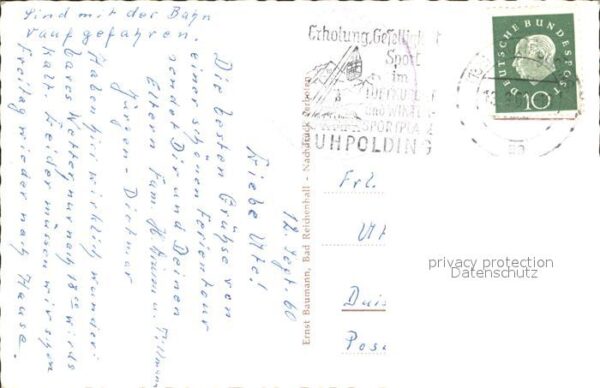 Sind mit der Bahn
rauf gefahren.
12. Sept. 60
Liebe Ute!
Die besten Grüße von
einer schönen Ferientour
sendet Dir und Deinen
Eltern Fam. u. Tillmann
Jürgen-Dietmar
Haben hier wirklich wunder
bares Wetter, nur nach 18 oo wirds
kalt. Leider müssen wir schon
Freitag wieder nach Hause.
Ernst Baumann, Bad Reichenhall - Nachdruck verboten
Erholung, Geselligkeit
Sport
im
LUFTKUR-
UND WINTER-
SPORTPLATZ
RUHPOLDING
DEUTSCHE BUNDESPOST
10
Frl.
Ut
Duis
Pos
privacy protection
Datenschutz